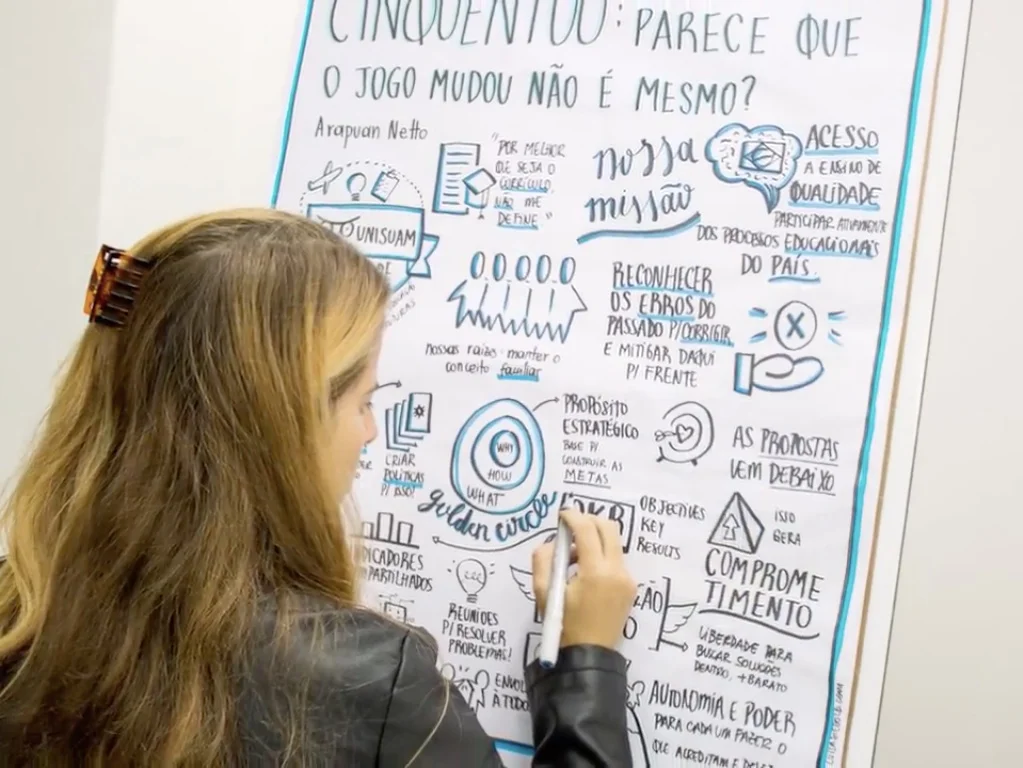 CINQUENTOU: PARECE QUE
O JOGO MUDOU NÃO É MESMO?
Arapuan Netto
"POR MELHOR
QUE SEJA O
CURRÍCULO,
NÃO ME
DEFINE"
nossa
missão
ACESSO
A ENSINO DE
QUALIDADE
PARTICIPAR ATIVAMENTE
DOS PROCESSOS EDUCACIONAIS
DO PAÍS.
UNISUAM
DE
nossas raízes manter o
conceito familiar
RECONHECER
OS ERROS DO
PASSADO P/CORRIGIR
E MITIGAR DAQUI
P/ FRENTE
X
CRIAR
POLÍTICAS
P/ ISSO!
WHY
HOW
WHAT
golden circle
PROPÓSITO
ESTRATÉGICO
BASE P/
CONSTRUIR AS
METAS
AS PROPOSTAS
VEM DEBAIXO
OKR
OBJECTIVES
KEY
RESULTS
ISSO
GERA
COMPROME
TIMENTO
DICADORES
MPARTILHADOS
REUNIÕES
P/ RESOLVER
PROBLEMAS!
ÇÃO
O
LIBERDADE PARA
BUSCAR SOLUÇÕES
DENTRO, + BARATO
ENVOL
À TODO
AUTONOMIA E PODER
PARA CADA UM FAZER O
QUE ACREDITAM E